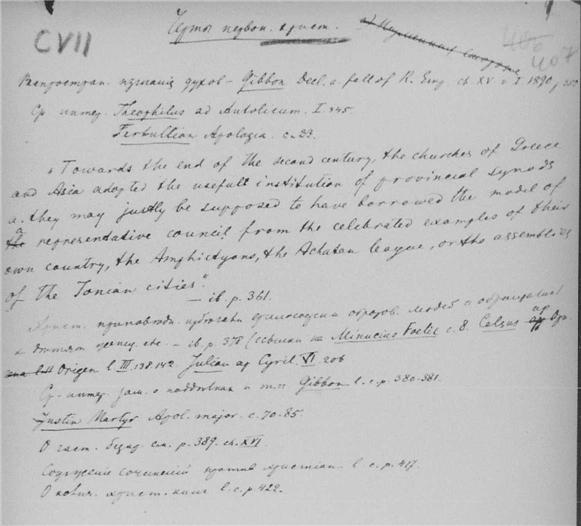 CVII
Черты первон. христ.
406
407
Распростран. изгнания духов – Gibbon Decl. a. fall of R. Emp. ch. XV. v. I 1890, p.
Ср. интер. Theophilus ad Autolicum. I. 345.
Tertullian Apologia. c. 23.
"Towards the end of the second century, the churches of Greece
and Asia adopted the usefull institution of provincial synods
a. they may justly be supposed to have borrowed the model of
a representative council from the celebrated examples of their
own country, the Amphictyons, the Achaean league, or the assemblies
of the Ionian cities".
– ib. p. 361.
Христ. проповедн. избегали философски образов. людей и обращались
к ib. p. 378 (ссылки на Minucius Foelix c. 8. Celsus ap
Origen l. III. 138. 142. Julian ap Cyril. VI 206
Ср. интер. зам. о Gibbon l. c. p. 380-381.
Justin Martyr Apol. major. c. 70-85.
О см. p. 389. ch. XVI.
Сожжение сочинений против христиан. l. c. p. 417.
О христ. книг l. c. p. 422.